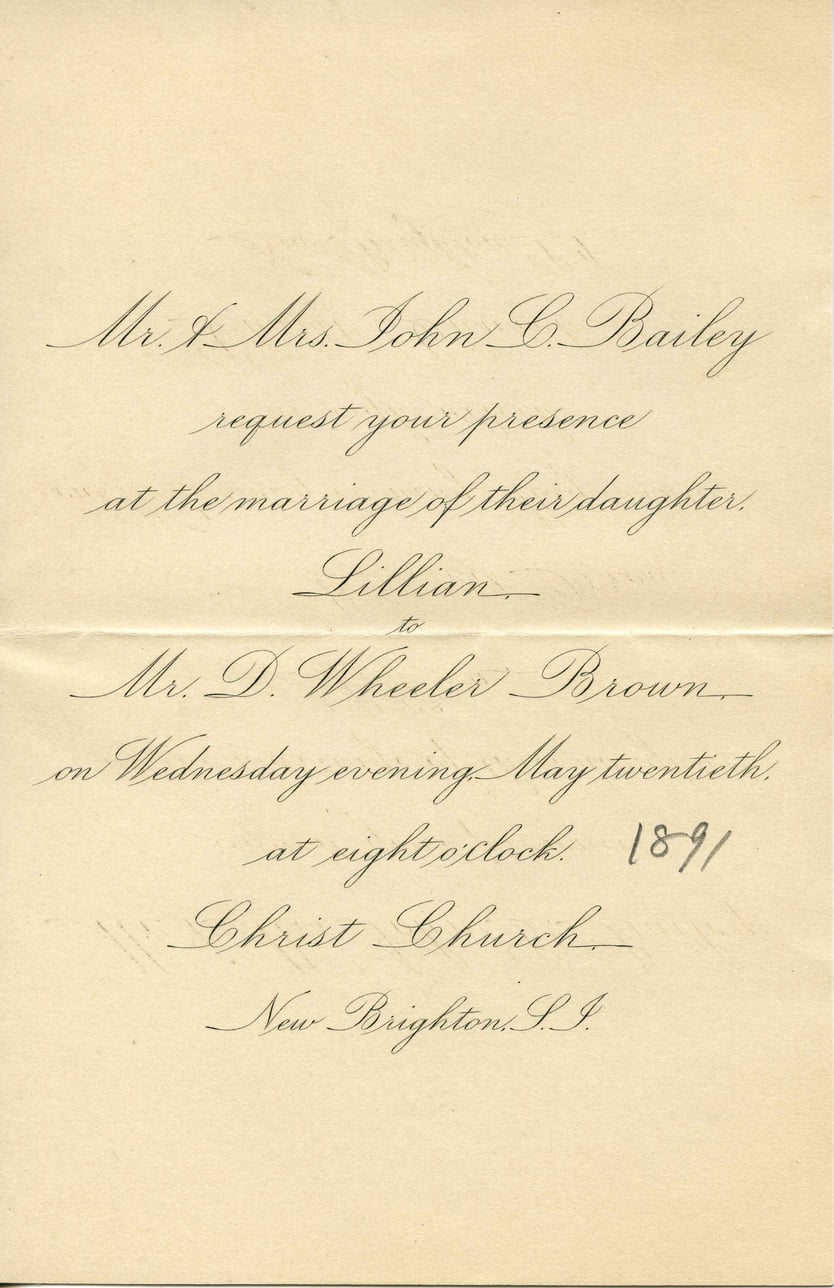 Mr. & Mrs. John C. Bailey
request your presence
at the marriage of their daughter.
Lillian
to
Mr. D. Wheeler Brown
on Wednesday evening, May twentieth,
at eight o'clock. 1891
Christ Church
New Brighton, S. I.